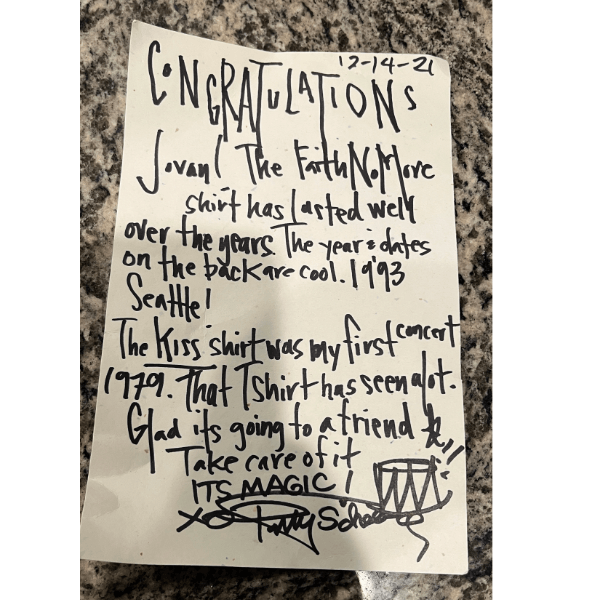 12-14-21
CONGRATULATIONS
Jovan! The Faith No More
shirt has lasted well
over the years. The year & dates
on the back are cool. 1993
Seattle!
The KISS shirt was my first concert
1979. That Tshirt has seen alot.
Glad its going to a friend
Take care of it
ITS MAGIC!
XO Patty